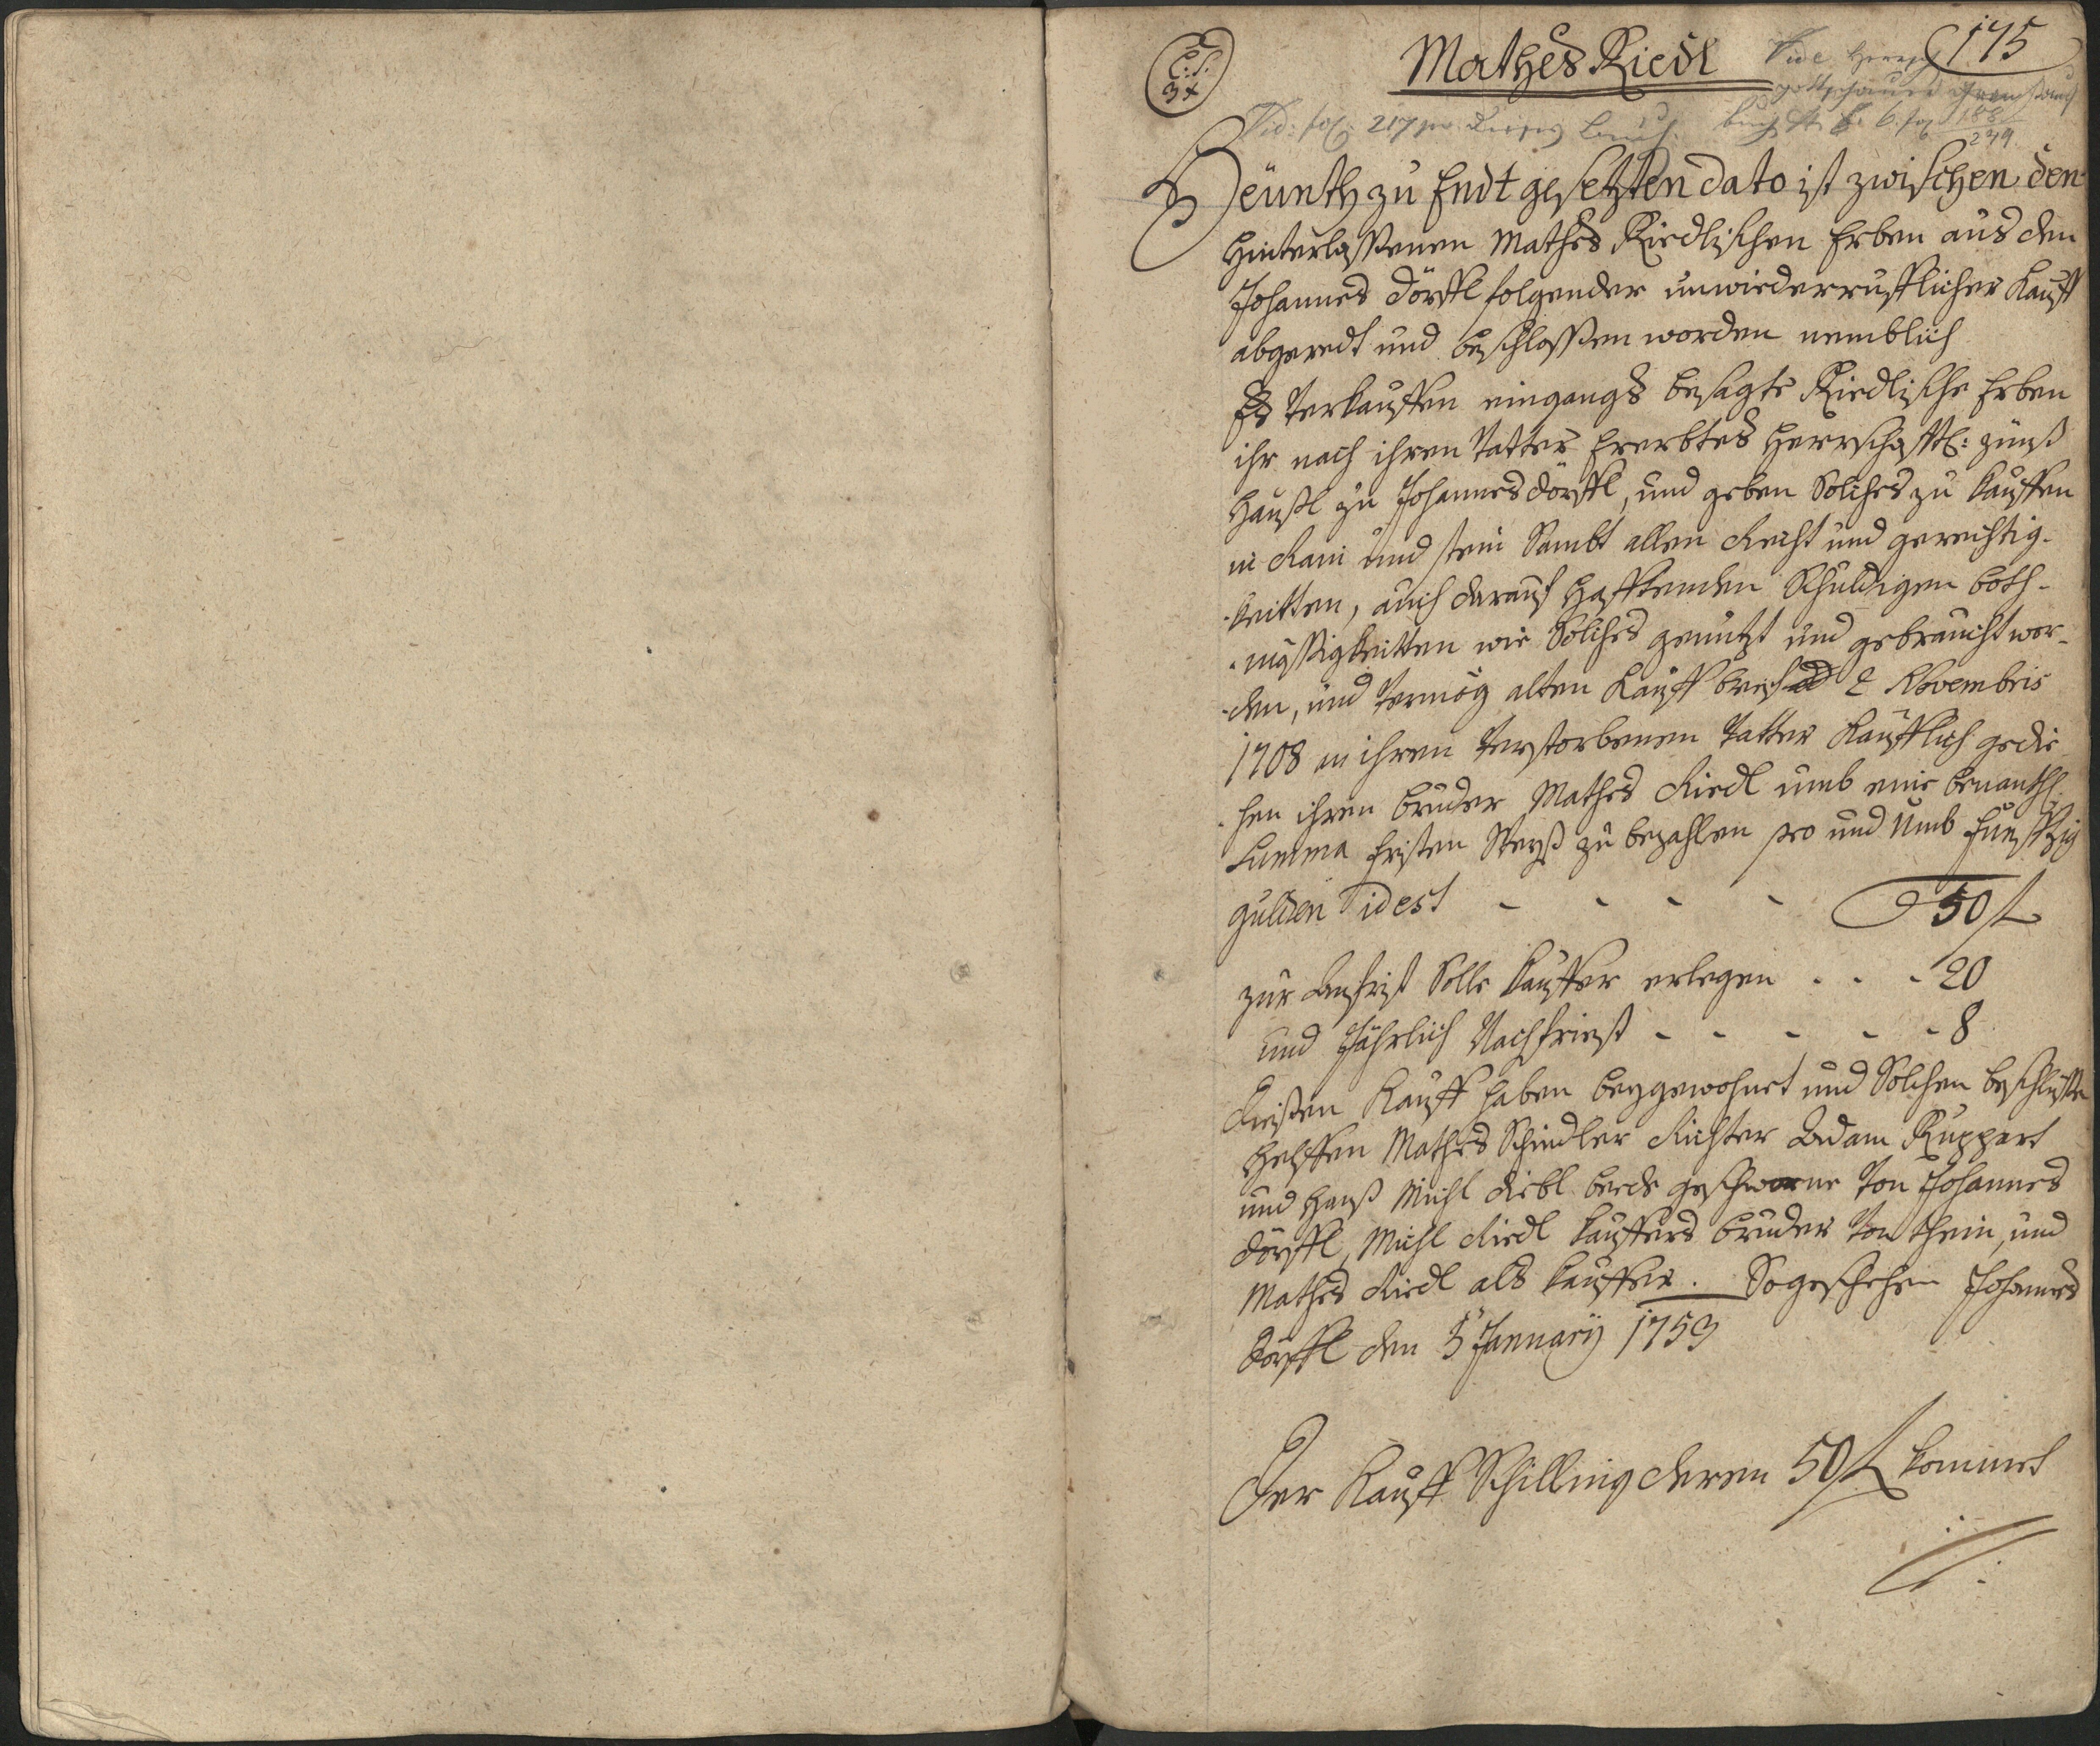 C:S:
34
Mathes Riedl
175
Vide
Vid: fol: 217
buch 188
249.
Heünth zu Endt gesetzten dato ist zwischen den
hinterlassenen Mathes Riedlischen Erben aus den
Johannes dörffl folgender unwiederrufflicher Kauff
abgeredt und beschlossen worden nemblich
Es Verkauffen eingangs besagte Riedlische Erben
ihr nach ihren Vatter Ererbtes Herrschafftl: zünß
Haußl zu Johannesdörffl, und geben Solches zu kauffen
in Rain und stein Sambt allen Recht und gerechtig-
-keitten, auch darauf hafftenden Schuldigen both-
-mässigkeitten wie Solches genutzt und gebraucht wor-
-den, und Vermög alten Kauff brief 2 Novembris
1708 an ihren Verstorbenen Vatter Käufflich gedie-
-hen ihren bruder Mathes Riedl umb eine benantl.
Summa fristen Weyß zu bezahlen pro und Umb Funffzig
gulden idest - - - - 50 f
zur Anfrist Solle Kauffer erlegen . . . 20
und Jährlich Nachfriest - - - - - 8
Diesen Kauff haben beygewohnet und Solchen beschlüssen
helffen Mathes Schindler Richter Adam Ruppert
und Hanß Michl Riedl beede geschworne Von Johannes
dörffl, Michl Riedl Kauffers bruder Von thein, und
Mathes Riedl als Kauffer. So geschehen Johannes
dörffl den 5 January 1753
Der Kauff Schilling deren 50 f kommet